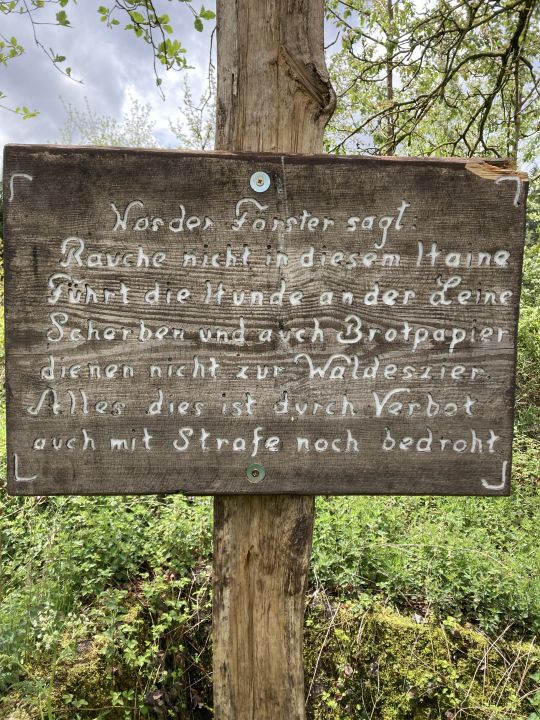 Was der Förster sagt:
Rauche nicht in diesem Haine
Führt die Hunde an der Leine
Scherben und auch Brotpapier
dienen nicht zur Waldeszier.
Alles dies ist durch Verbot
auch mit Strafe noch bedroht